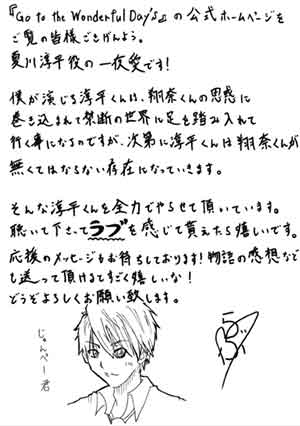 『Go to the Wonderful Day's』の公式ホームページを
ご覧の皆様ごきげんよう。
夏川淳平役の一夜愛です!
僕が演じる淳平くんは、翔奈くんの思惑に
巻き込まれて禁断の世界に足を踏み入れて
行く事になるのですが、次第に淳平くんは翔奈くんが
無くてはならない存在になっていきます。
そんな淳平くんを全力でやらせて頂いています。
聴いて下さってラブを感じて貰えたら嬉しいです。
応援のメッセージもお待ちしております!物語の感想など
も送って頂けるとすごく嬉しいな!
どうぞよろしくお願い致します。
じゅんぺー君